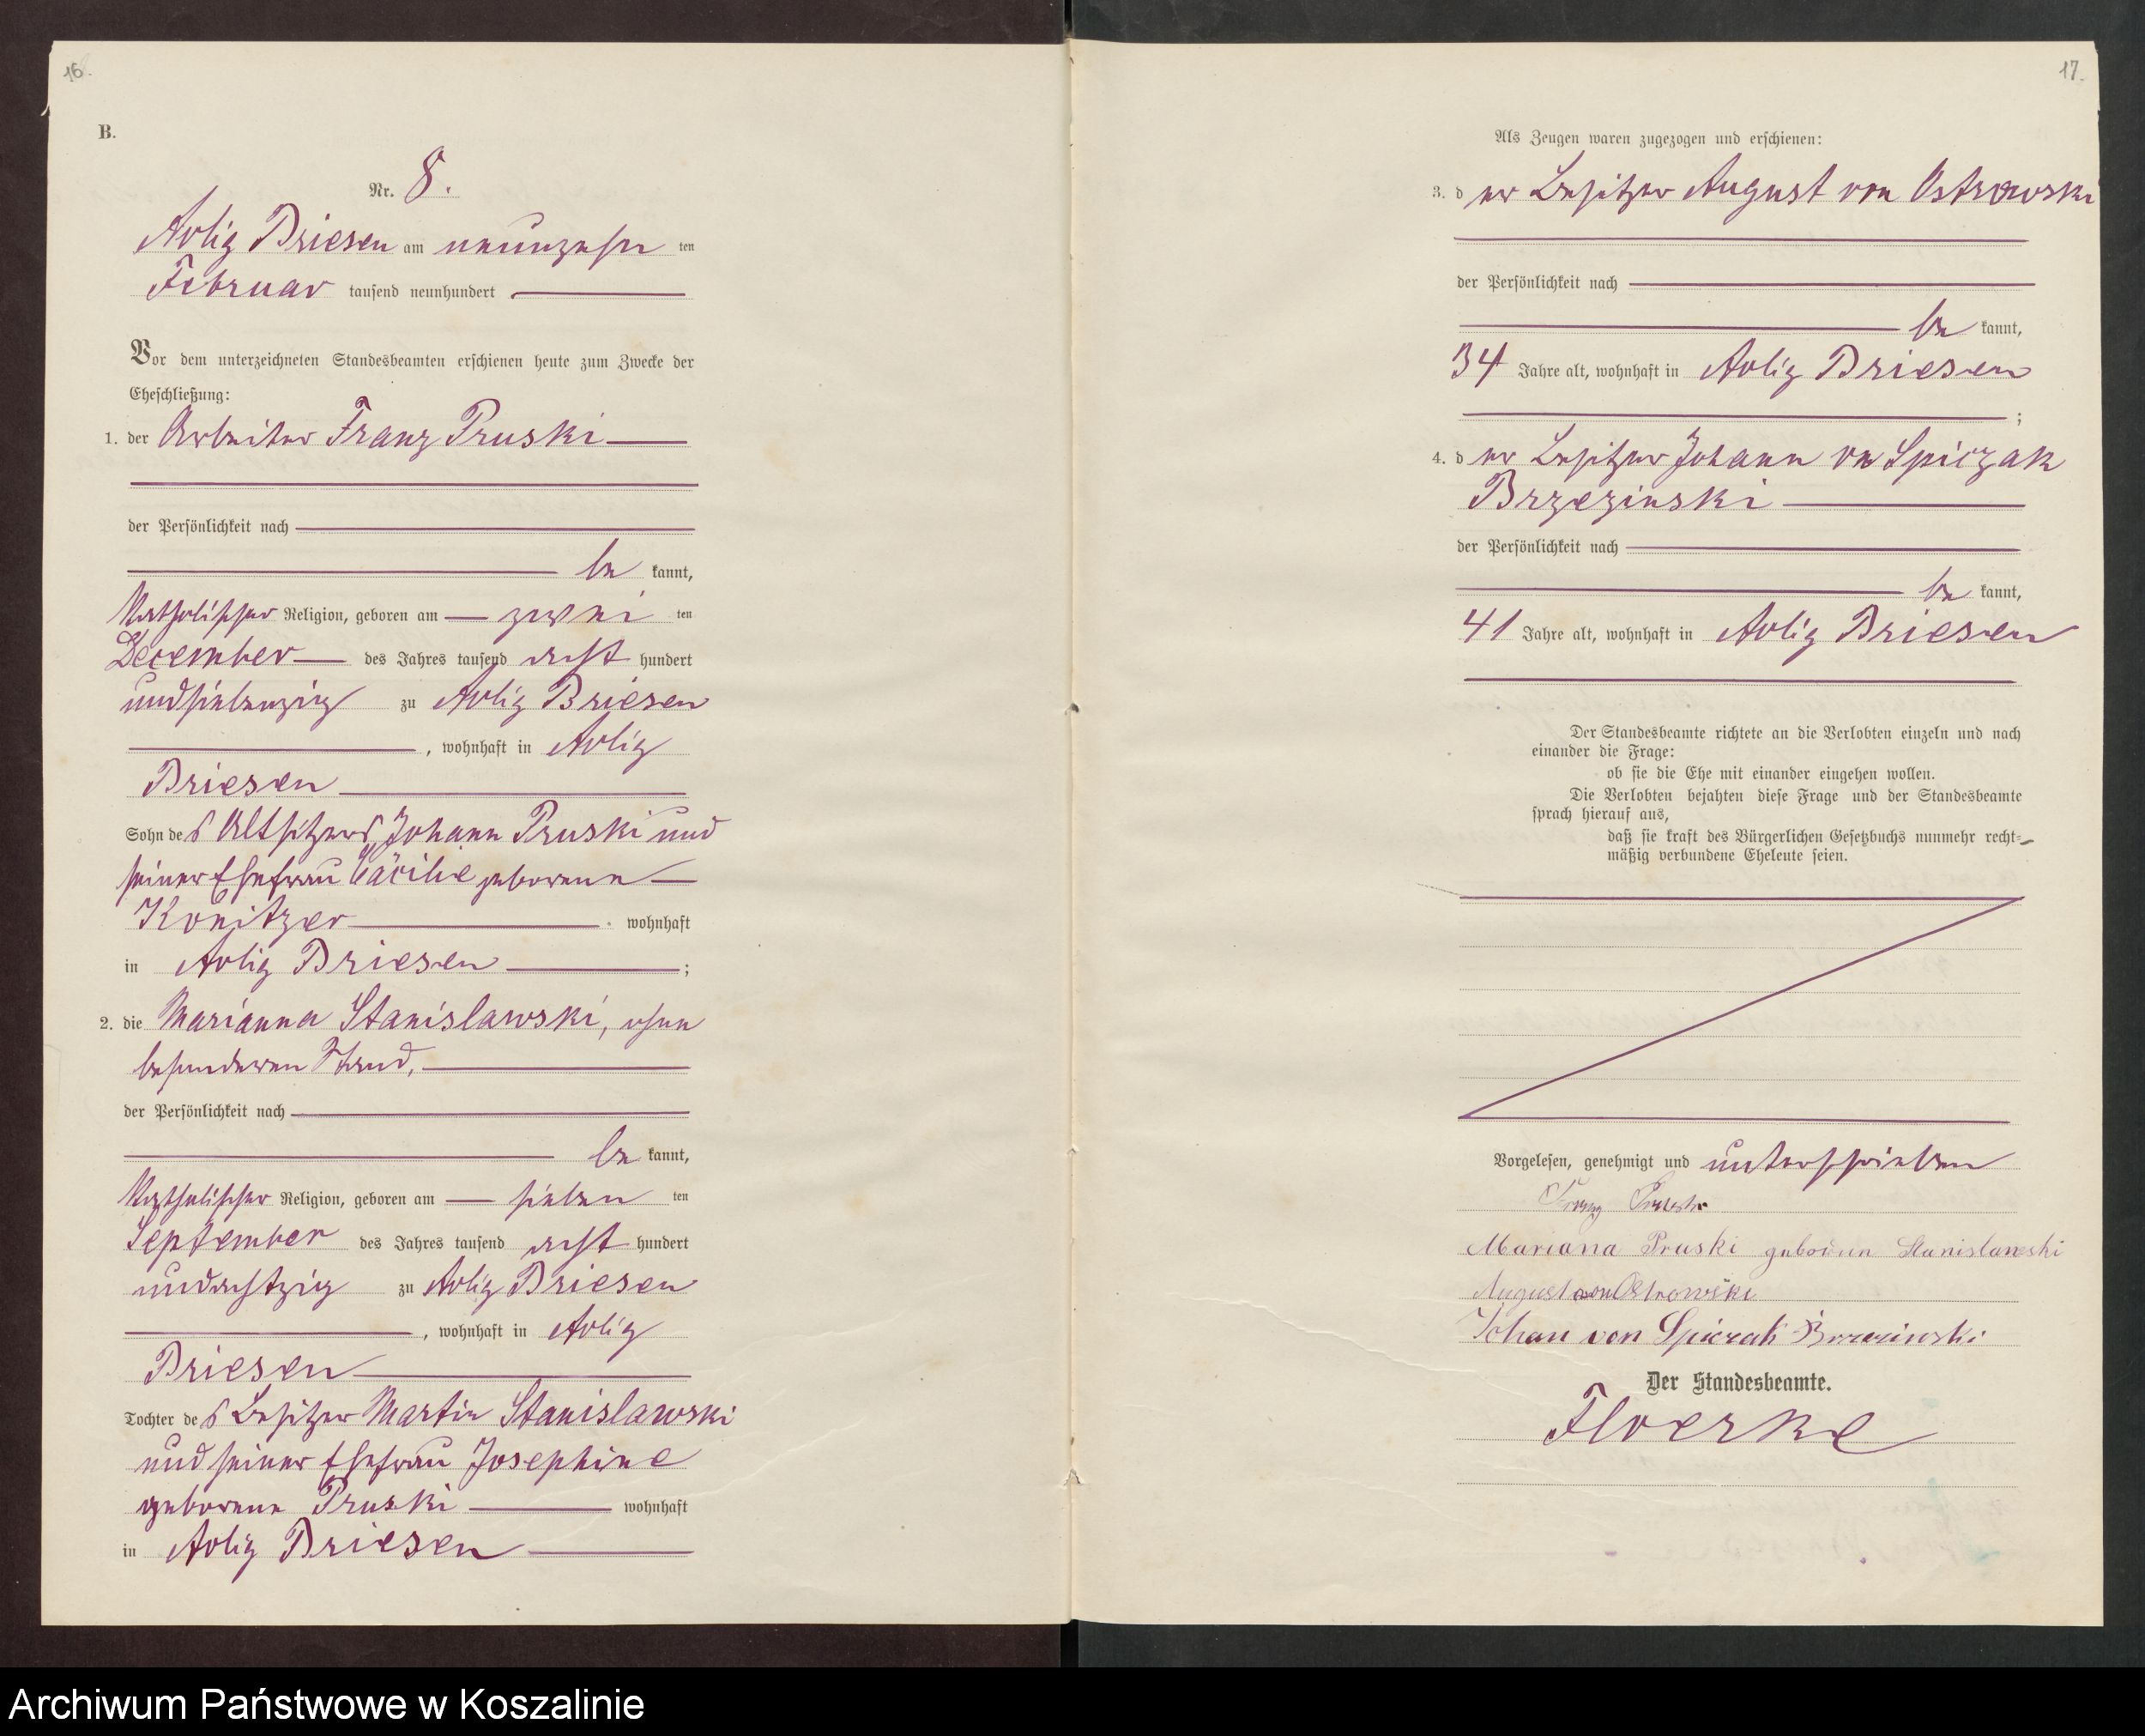 16.
B.
Nr. 8.
Adlig Briesen am neunzehn ten
Februar tausend neunhundert
Vor dem unterzeichneten Standesbeamten erschienen heute zum Zwecke der
Eheschließung:
1. der Arbeiter Franz Pruski
der Persönlichkeit nach
be kannt,
katholischer Religion, geboren am zwei ten
December des Jahres tausend acht hundert
undsiebenzig zu Adlig Briesen
, wohnhaft in Adlig
Briesen
Sohn des Altsitzers Johann Pruski und
seiner Ehefrau Cäcilie geborene
Konitzer wohnhaft
in Adlig Briesen ;
2. die Marianna Stanislawski, ohne
besonderen Stand,
der Persönlichkeit nach
be kannt,
katholischer Religion, geboren am sieben ten
September des Jahres tausend acht hundert
undachtzig zu Adlig Briesen
, wohnhaft in Adlig
Briesen
Tochter des Besitzer Martin Stanislawski
und seiner Ehefrau Josephine
geborene Pruski wohnhaft
in Adlig Briesen
17.
Als Zeugen waren zugezogen und erschienen:
3. der Besitzer August von Ostrowski
der Persönlichkeit nach
be kannt,
34 Jahre alt, wohnhaft in Adlig Briesen
;
4. der Besitzer Johann von Spiczak
Brzezinski
der Persönlichkeit nach
be kannt,
41 Jahre alt, wohnhaft in Adlig Briesen
Der Standesbeamte richtete an die Verlobten einzeln und nach
einander die Frage:
ob sie die Ehe mit einander eingehen wollen.
Die Verlobten bejahten diese Frage und der Standesbeamte
sprach hierauf aus,
daß sie kraft des Bürgerlichen Gesetzbuchs nunmehr recht-
mäßig verbundene Eheleute seien.
Vorgelesen, genehmigt und unterschrieben
Franz Pruski
Mariana Pruski geboren Stanislawski
August von Ostrowski
Johan von Spiczak Brzezinski
Der Standesbeamte.
Floerke
Archiwum Państwowe w Koszalinie